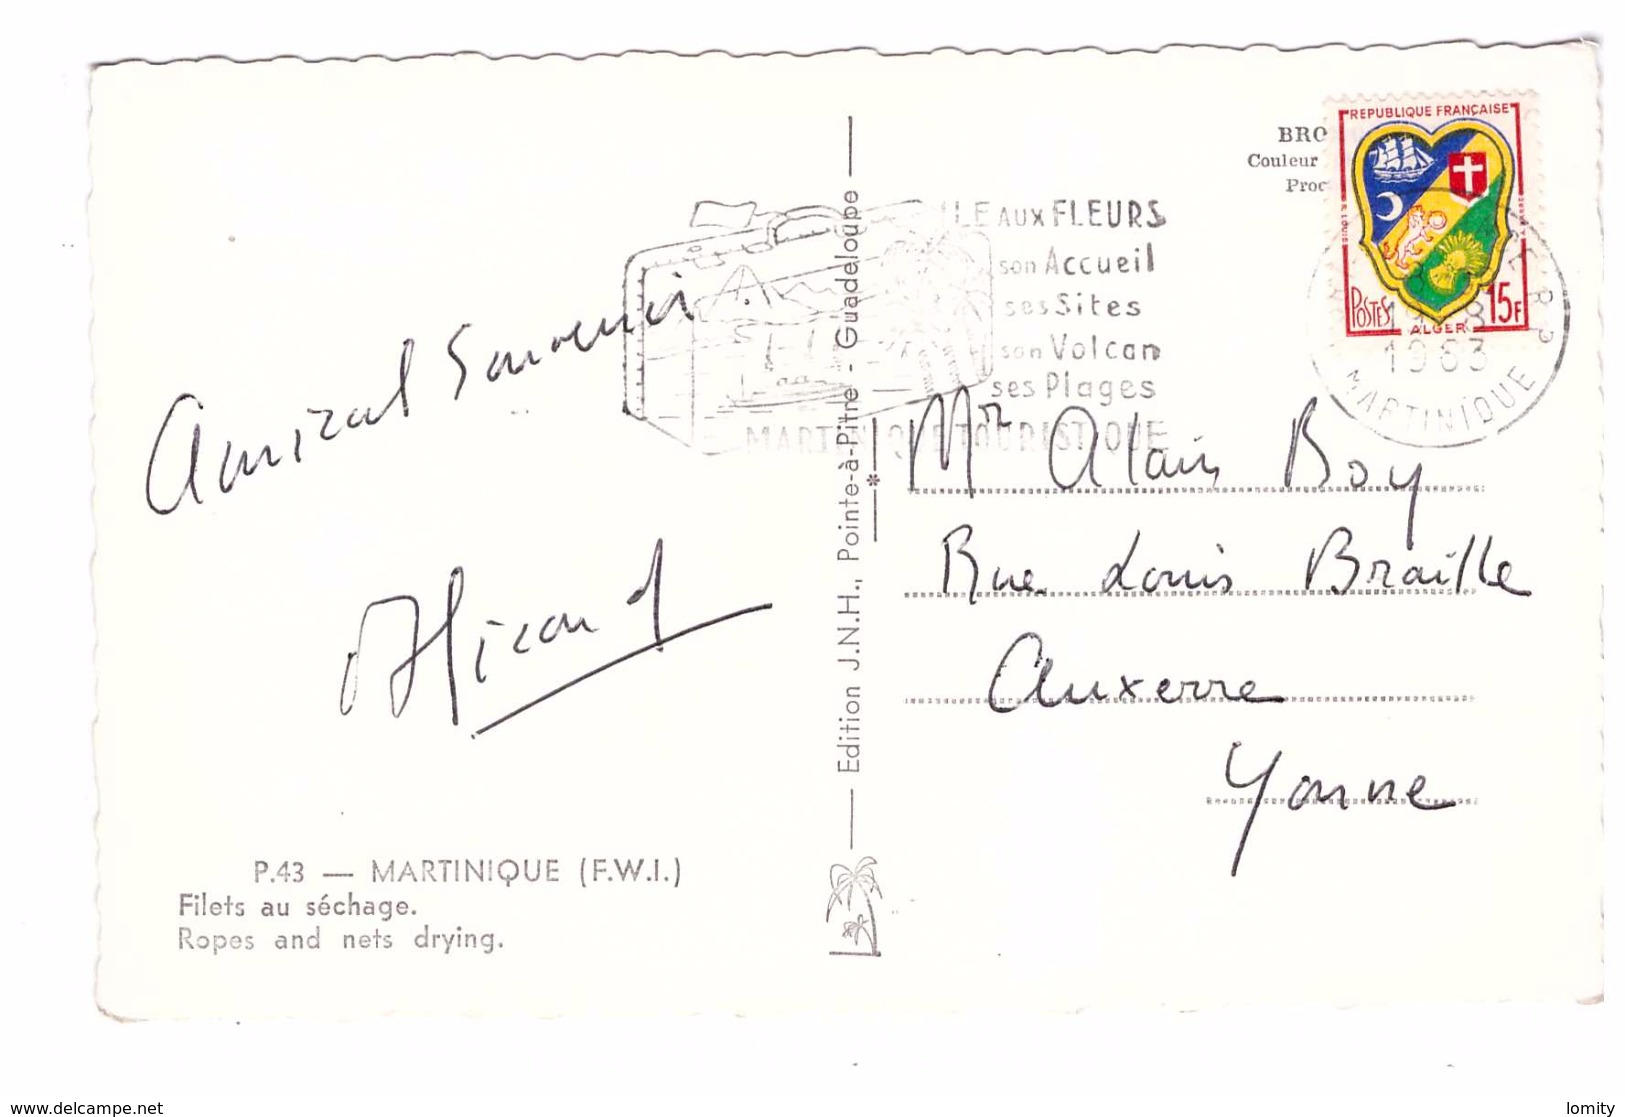 Amical Souvenir
P.43 — MARTINIQUE (F.W.I.)
Filets au séchage.
Ropes and nets drying.
Edition J.N.H., Pointe-à-Pitre - Guadeloupe
ILE AUX FLEURS
son Accueil
ses Sites
son Volcan
ses Plages
MARTINIQUE TOURISTIQUE
BRO
Couleur
Proc
REPUBLIQUE FRANÇAISE
POSTES
ALGER
15F
1963
MARTINIQUE
Mr Alain Boy
Rue Louis Braille
Auxerre
Yonne
www.delcampe.net
lomity